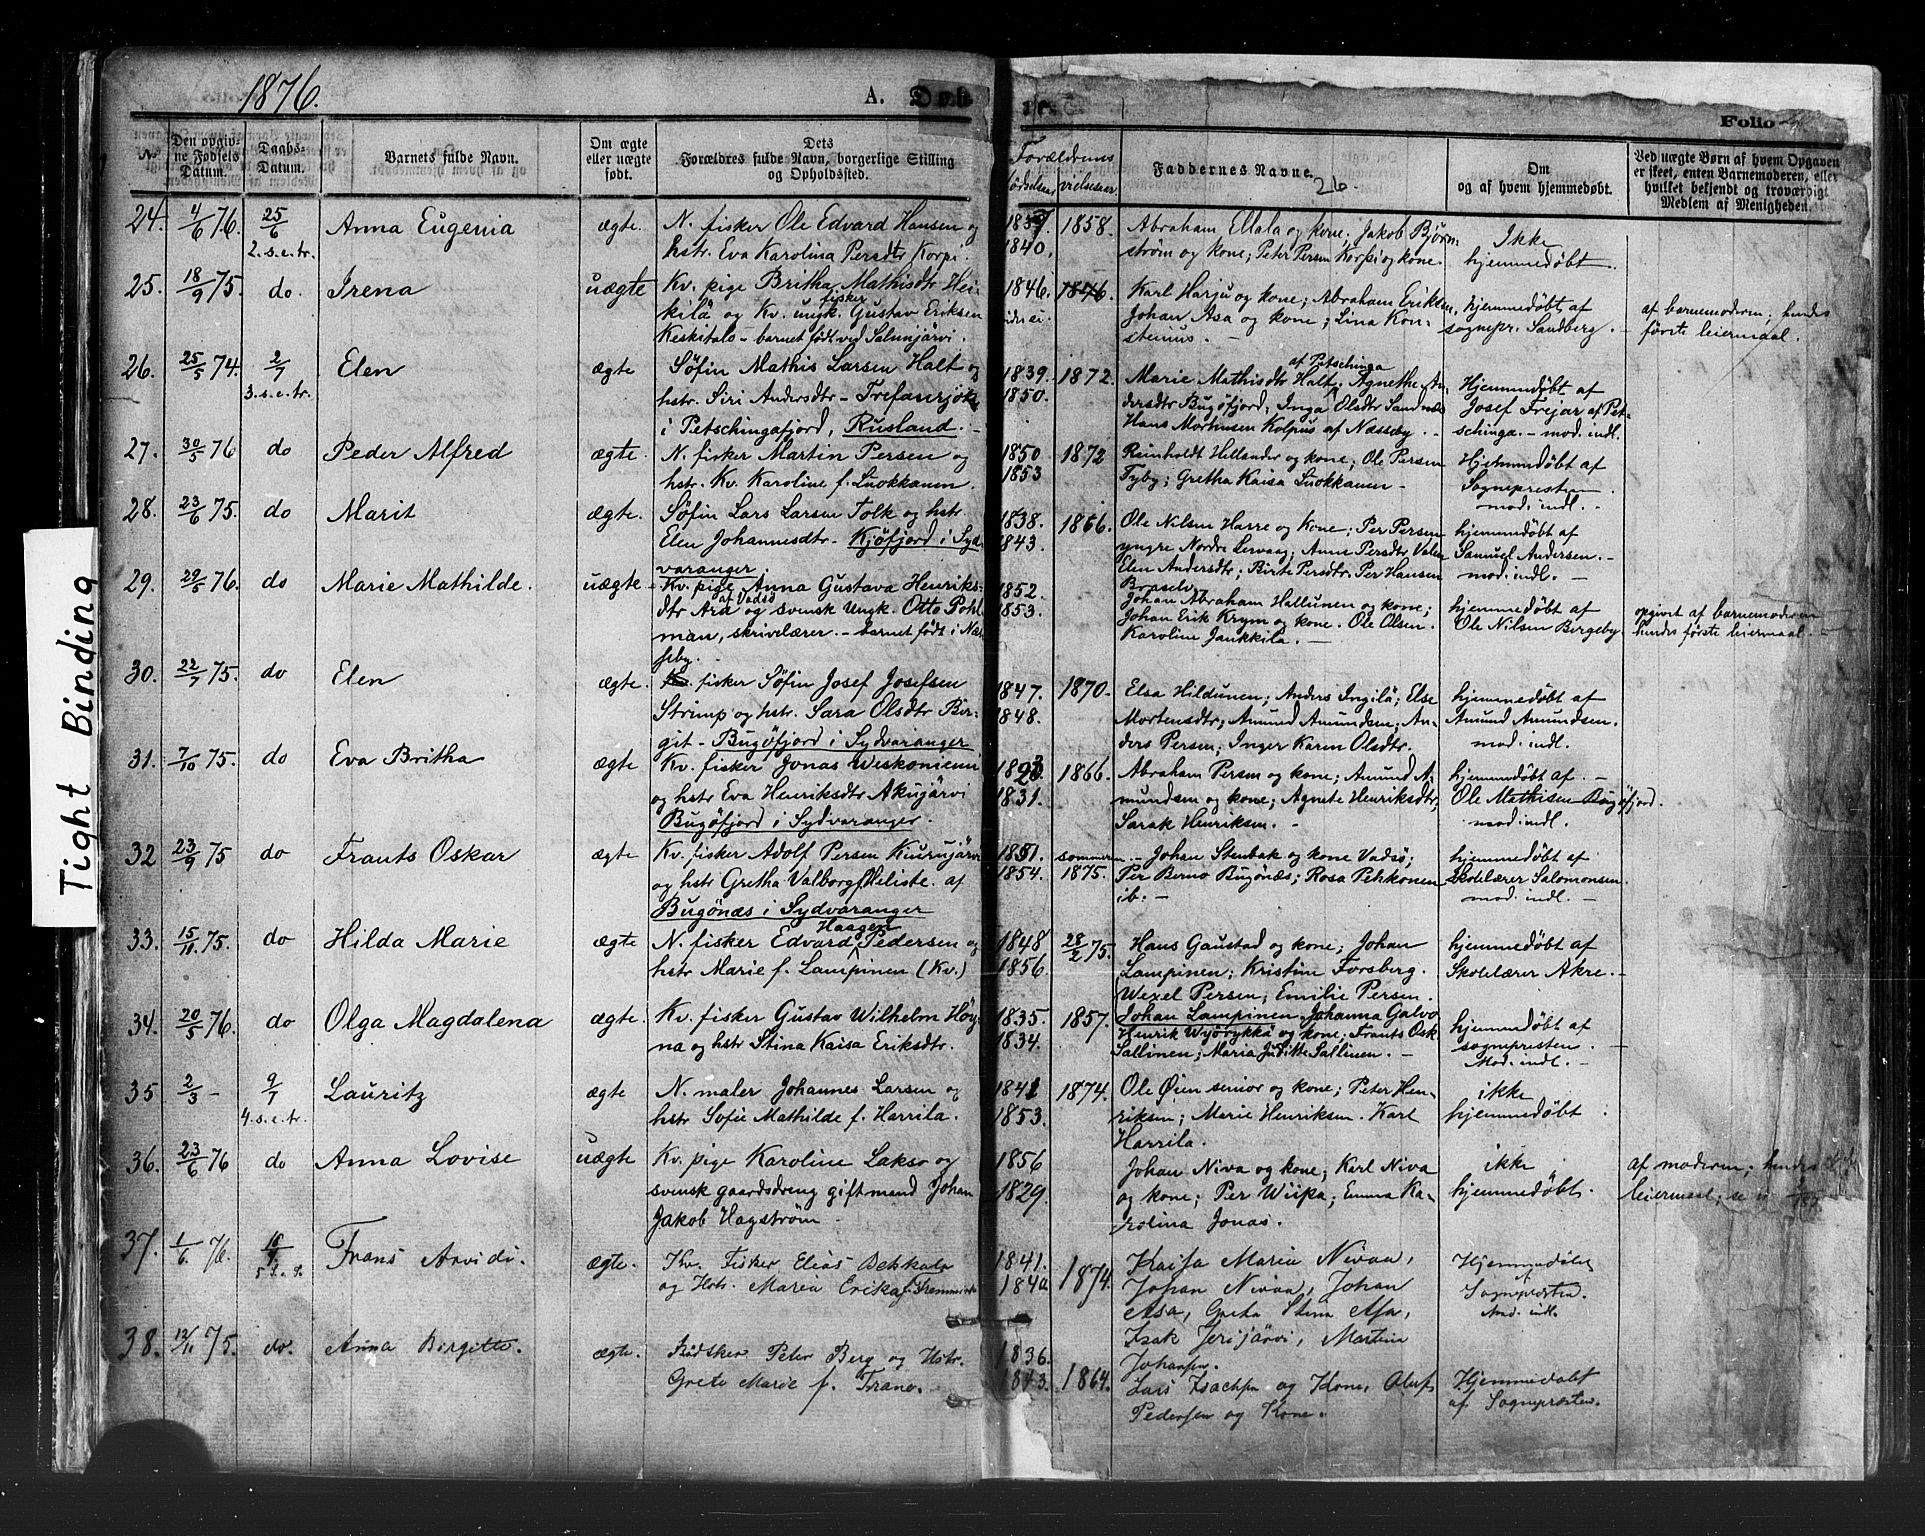 1876.
A.
Døb
Folio
No
Den opgiv-
ne Fødsels
Datum.
Daabs-
Datum.
Barnets fulde Navn.
Om ægte
eller uægte
født.
Dets
Forældres fulde Navn, borgerlige Stilling
og Opholdssted.
Forældrenes
fødselsaar
vielsesaar
Faddernes Navne.
26.
Om
og af hvem hjemmedøbt.
Ved uægte Børn af hvem Opgaven
er skeet, enten Barnemoderen, eller
hvilket bekjendt og troværdigt
Medlem af Menigheden.
Tight Binding
24. 4/6 76. 25/6 Anna Eugenia ægte. N. fisker Ole Edvard Hansen og 1858. Abraham Ellala og kone; Jakob Bjørn- Ikke
2. s. e. tr. hstr. Eva Karolina Persdtr Korpi. 1840. strøm og kone; Peter Persen Korpi og kone. hjemmedøbt.
25. 18/9 75. do. Irena uægte Kv. pige Britha Mathisdtr Hei- 1846. 1876. Karl Harju og kone; Abraham Eriksen, hjemmedøbt af af barnemoderen; hendes
kilä og Kv. ungk. fisker Gustav Eriksen Johan Asa og kone; Lina Kon- sognepr. Sandberg. første leiermaal.
Keskitalo - barnet født ved Salmijärvi. stenius. -
26. 25/5 74. 2/7 Elen ægte Søfin Mathis Larsen Halt og 1839. 1872. Marie Mathisdtr Halt af Petschinga, Agnethe An- Hjemmedøbt af
3. s. e. tr. hstr. Siri Andersdtr - Trefanrjok 1850. dersdtr Bugöfjord; Inga Olsdtr Sandnæs Josef Trejar af Pet-
i Petschingafjord, Rusland. - Hans Mortensen Kolpus af Næsseby. - schinga. - mod. indl.
27. 30/5 76 do Peder Alfred ægte. N. fisker Martin Persen og 1850 1872 Reinholdt Hellander og kone; Ole Persen Hjemmedøbt af
hstr. Kv. Karoline f. Luokkanen. 1853 Tyby; Gretha Kaisa Luokkanen - Sognepresten.
mod. indl. -
28. 23/6 75. do Marit ægte. Søfin Lars Larsen Tolk og hstr. 1838. 1866. Ole Nilsen Harre og kone; Per Persen hjemmedøbt af
Elen Johannesdtr - Kjöfjord i Syd- 1843. yngre Nordre Lervaag; Anne Persdtr Samuel Andersen. -
varanger. Elen Andersdtr; Birte Persdtr; Per Hansen mod. indl. -
29. 29/5 76. do Marie Mathilde. uægte Kv. pige Anna Gustava Henriks- 1852. Johan Abraham Hallunen og kone; hjemmedøbt af opgivet af barnemoderen
dtr Ara af Vadsö og svensk Ungk. Otto Pohl- 1853. Johan Erik Krym og kone. Ole Olsen. Ole Nilsen Bergeby. hendes første leiermaal. -
man, skrivelærer. - barnet født i Næs- Karoline Jankkila. -
seby.
30. 22/7 75. do Elen ægte fisker Søfin Josef Josefsen 1847. 1870. Elsa Hildunen; Anders Ingilä; Else hjemmedøbt af
Strimp og hstr. Sara Olsdtr Bir- 1848. Mortensdtr; Amund Amundsen; An- Amund Amundsen.
git - Bugöfjord i Sydvaranger ders Persen; Inger Karen Olsdtr. mod. indl.
31. 7/10 75. do Eva Britha ægte Kv. fisker Jonas Weskoniemi 1823 1866. Abraham Persen og kone; Amund A- hjemmedøbt af. -
og hstr Eva Henriksdtr Akujärvi 1831. mundsen og kone; Agnete Henriksdtr, Ole Mathisen Bugöfjord.
Bugöfjord i Sydvaranger. Sarak Henriksen. - mod. indl.
32 23/9 75 do Frants Oskar ægte Kv. fisker Adolf Persen Kiurujärvi 1851. sommeren - Johan Stenbak og kone Vadsö; hjemmedøbt af
og hstr Gretha Valborg f. Heliste. af 1854. 1875. Per Berno Bugönæs; Rosa Pehkonen Skolelærer Salomonsen.
Bugönæs i Sydvaranger ib. - mod. indl. -
33. 15/11 75. do Hilda Marie ægte N. fisker Edvard Haagen Pedersen og 1848 28/2 75. Hans Gaustad og kone; Johan hjemmedøbt af
hstr Marie f. Lampinen (Kv.) 1856. Lampinen; Kristine Forsberg. Skolelærer Akre. -
Wexel Persen; Emilie Persen.
34. 20/5 76. do Olga Magdalena ægte. Kv. fisker Gustav Wilhelm Höy- 1835. 1857. Johan Lampinen, Johanna Galvo hjemmedøbt af
na og hstr Stina Kaisa Eriksdtr. 1834. Henrik Wyörykkä og kone; Frants Osk. sognepresten. -
Sallinen; Maria Juditte Sallinen. - Mod. indl. -
35 2/3 - 9/7 Lauritz ægte N. maler Johannes Larsen og 1841 1874. Ole Øien senior og kone; Peter Hen- ikke
4. s. e. tr. hstr Sofie Mathilde f. Harrila. 1853. riksen; Marie Henriksen. Karl hjemmedøbt
Harrila.
36. 23/6 76 do Anna Lovise uægte Kv. pige Karoline Lakso og 1856 Johan Niva og kone; Karl Niva ikke af moderen; hendes
svensk gaardsdreng gift mand Johan 1829. og kone; Per Wiipa; Emma Ka- hjemmedøbt. leiermaal; se
Jakob Hagström - rolina Jonas.
37. 1/6 76. 16/7 Frans Arvidi ægte. Kv. Fisker Elias Pekkala 1841. 1874. Kaisa Maria Nivaa, Hjemmedøbt
5 S. e. T. og Hstr. Maria Erika f. 1840 Johan Nivaa, Johan af Sognepræsten.
Asa, Greta Stina Asa, Mod. indl.
Isak Jerijärvi, Martine
Johansen.
38. 12/11 75. do. Anna Birgitte. ægte. Bödsker Peter Berg og Hstr. 1836. 1864. Lars Isachsen og Kone, Oluf Hjemmedøbt
Grete Marie f. Trane. 1843. Pedersen og Kone. af Sognepræsten.